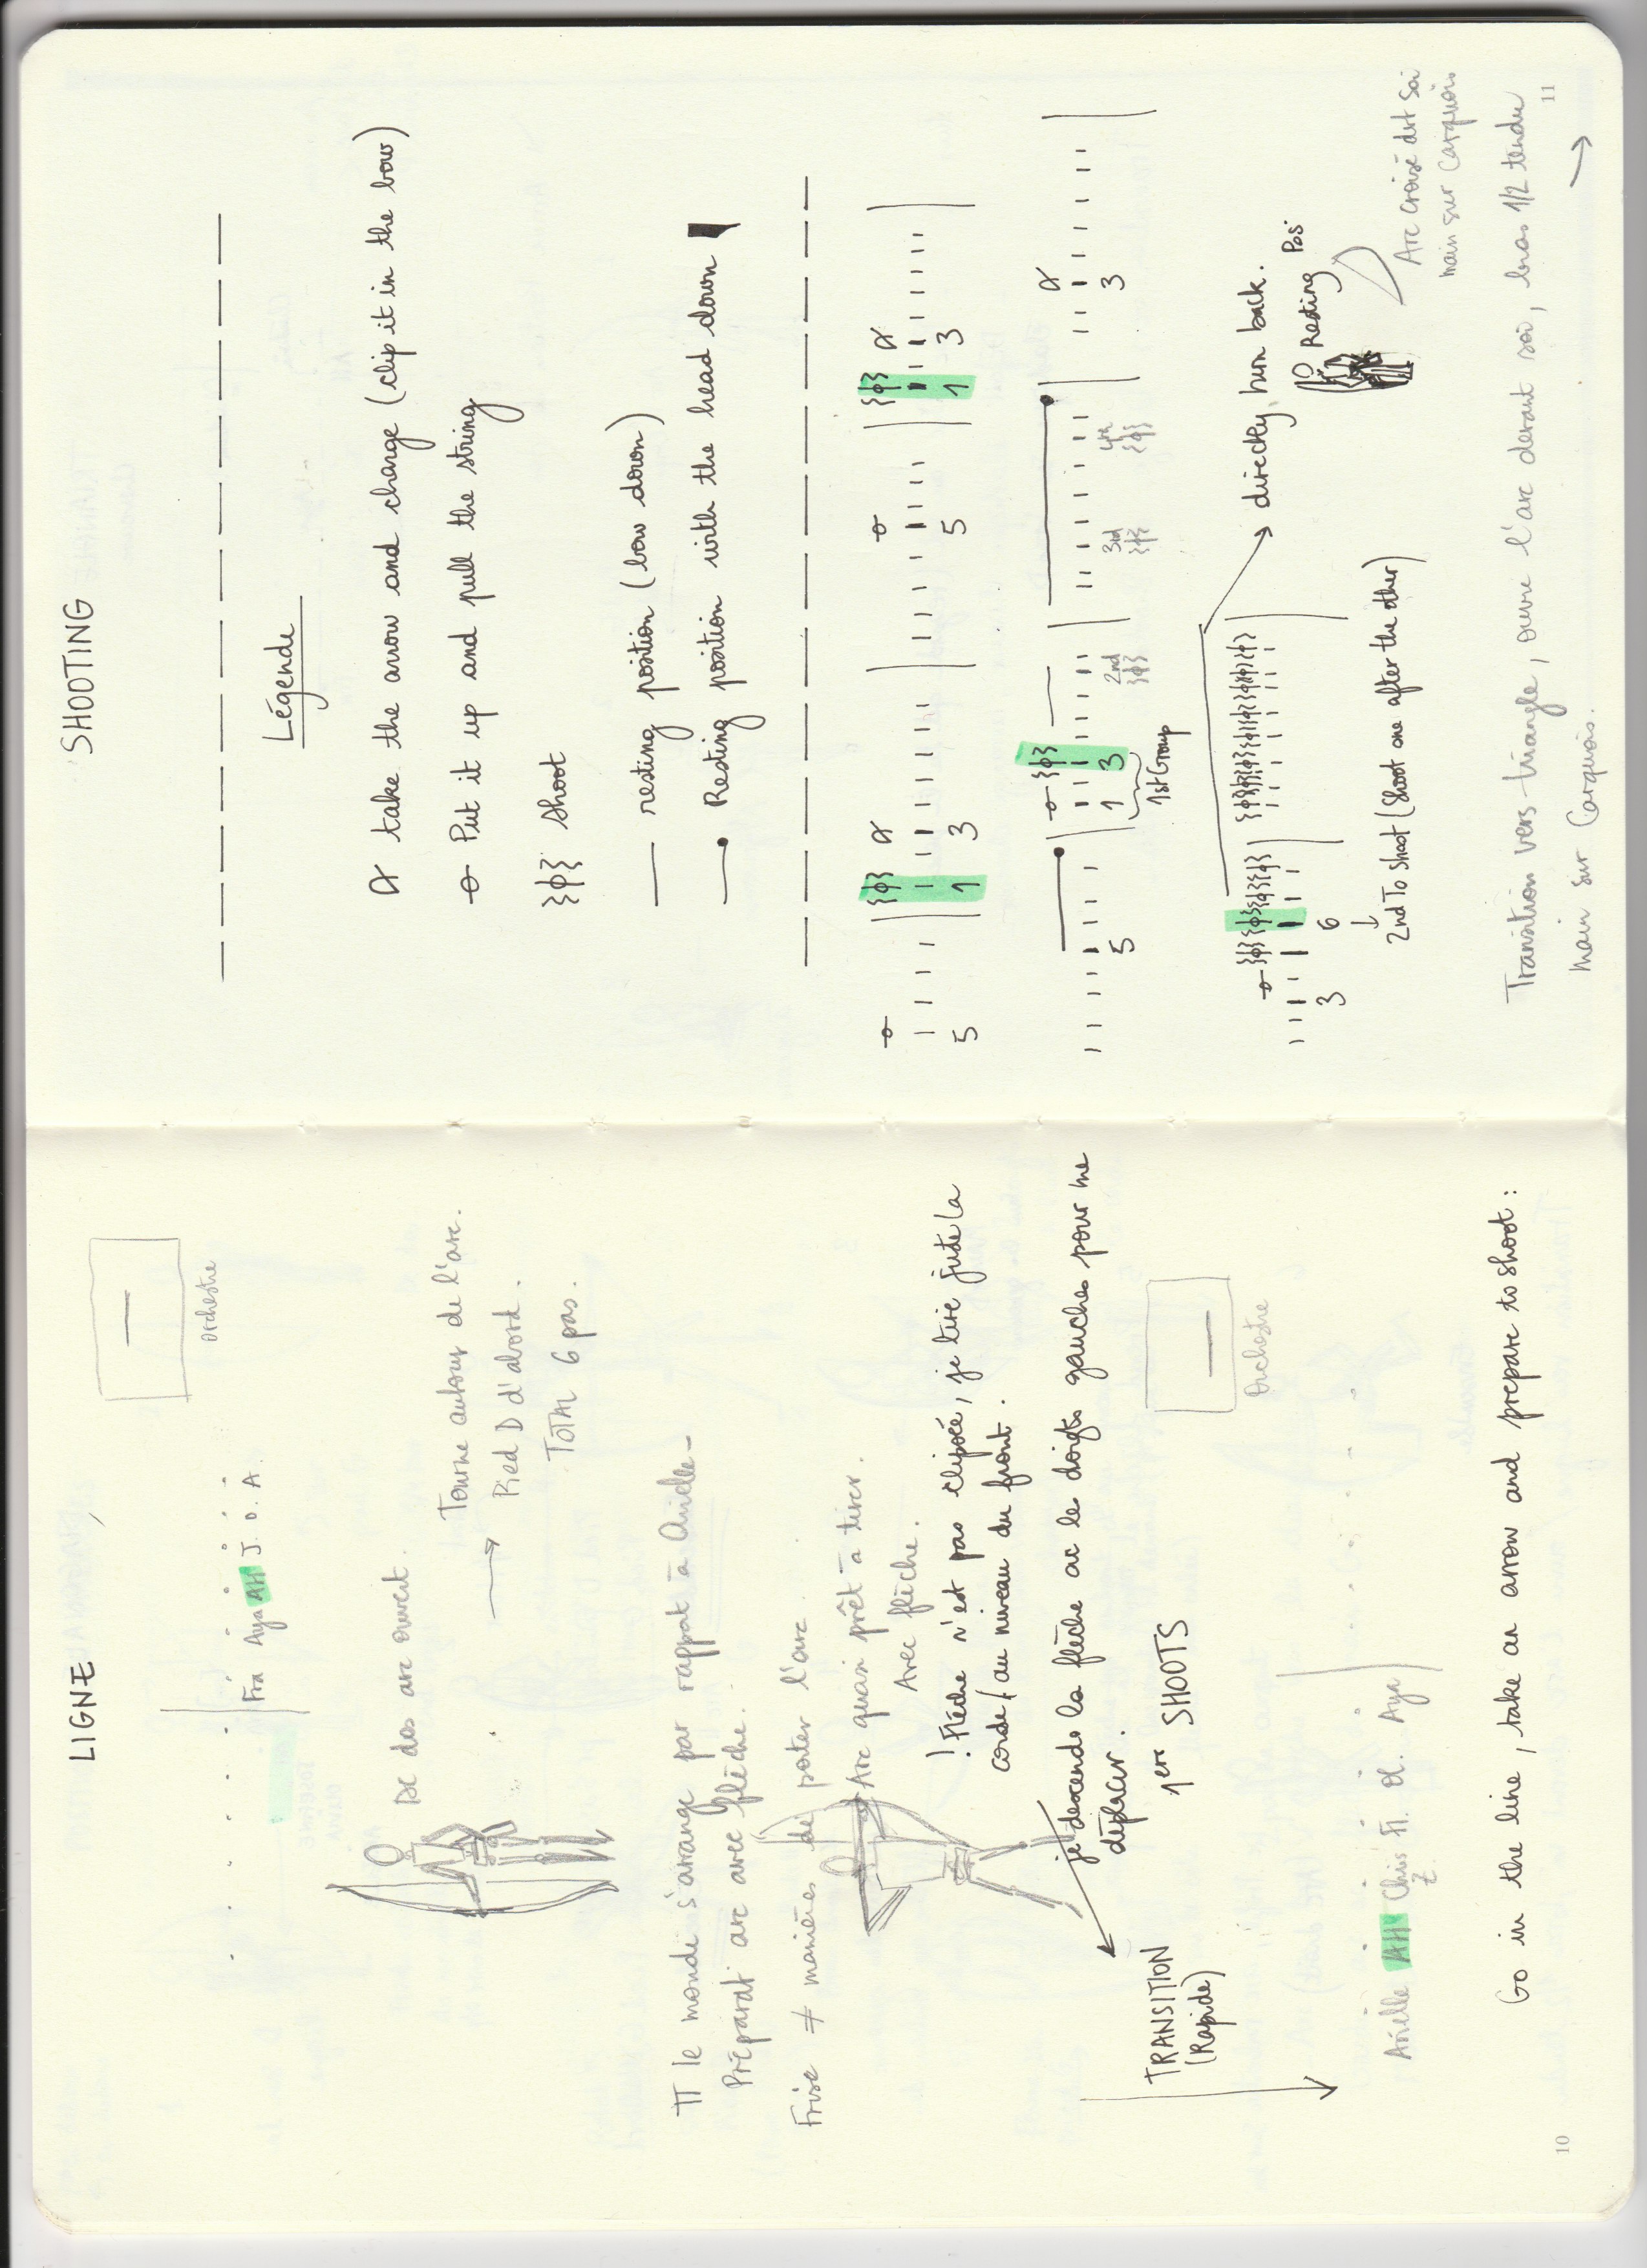 LIGNE
orchestre
Fra Aya AH J. O. A.
De dos arc ouvert.
Tourne autour de l'arc.
Pied D d'abord.
TOTAL 6 pas.
TT le monde s'arrange par rapport à Arielle-
Préparat° arc avec flèche.
Frise ≠ manières de porter l'arc.
Arc quasi prêt à tirer.
Avec flèche.
! Flèche n'est pas clipsée, je tire juste la
corde / au niveau du front.
je descends la flèche ac le doigts gauches pour me
déplacer.
TRANSITION
(Rapide)
1ers SHOOTS
Orchestre
Arielle AH Chris Fi. El. Aya
Z
Go in the line, take an arrow and prepare to shoot:
10
SHOOTING
Légende
take the arrow and change (clip it in the bow)
Put it up and pull the string
{ϕ} Shoot
— resting position (bow down)
Resting position with the head down
{ϕ} {ϕ}
5 1 3 5 1 3
{ϕ}
5 1 3 3
1st Group
2nd {ϕ}
3rd {ϕ}
4th {ϕ}
{ϕ}{ϕ}{ϕ}{ϕ}
3 6
2nd To shoot (Shoot one after the other)
directly turn back.
Resting Pos°
Arc croisé dvt soi
main sur Carquois
Transition vers triangle, ouvre l'arc devant soi, bras 1/2 tendu
main sur Carquois.
11